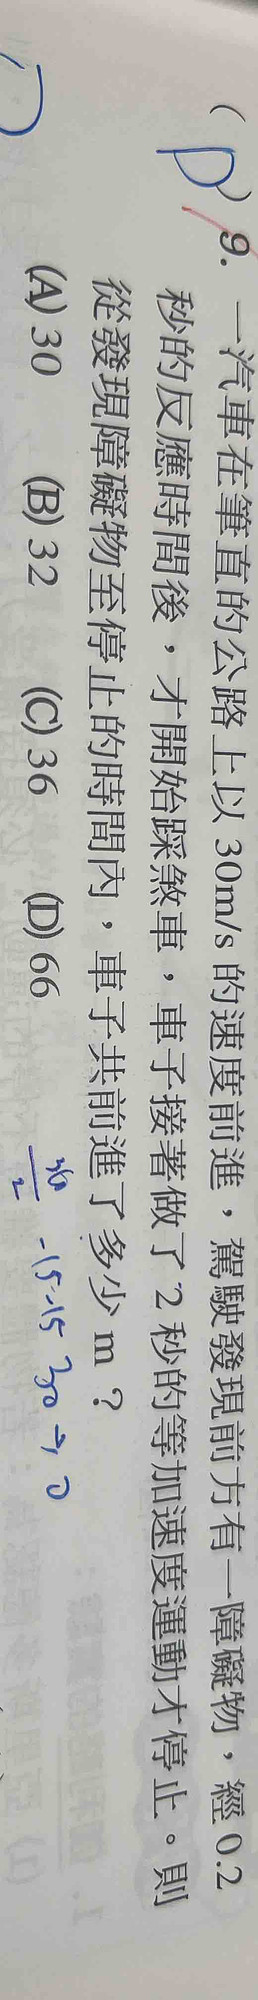 ( D ) 9. 一汽車在筆直的公路上以 30m/s 的速度前進，駕駛發現前方有一障礙物，經 0.2
秒的反應時間後，才開始踩煞車，車子接著做了 2 秒的等加速度運動才停止。則
從發現障礙物至停止的時間內，車子共前進了多少 m？
(A) 30 (B) 32 (C) 36 (D) 66
30
2
-15=15 30→0